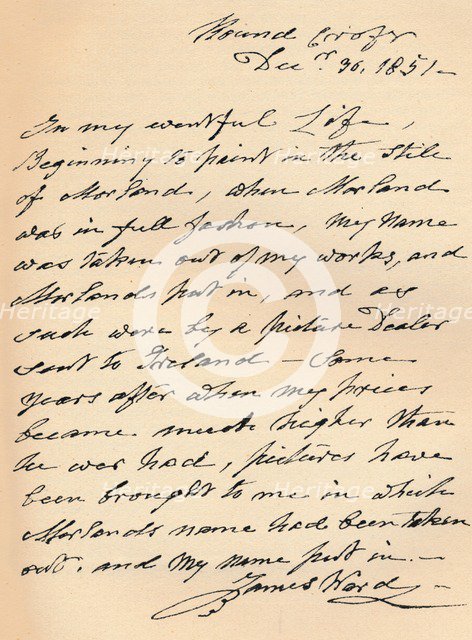 Round Croft
Decr. 30. 1851-
In my eventful Life,
Beginning to paint in the Stile
of Morland, when Morland
was in full fashon, My Name
was taken out of my works, and
Morlands put in, and as
such were by a picture Dealer
sent to Ireland - Some
years after when my prices
became much higher than
he ever had, pictures have
been brought to me in which
Morlands name had been taken
out. and My name put in. -
James Ward
Heritage
Heritage
Heritage
Heritage